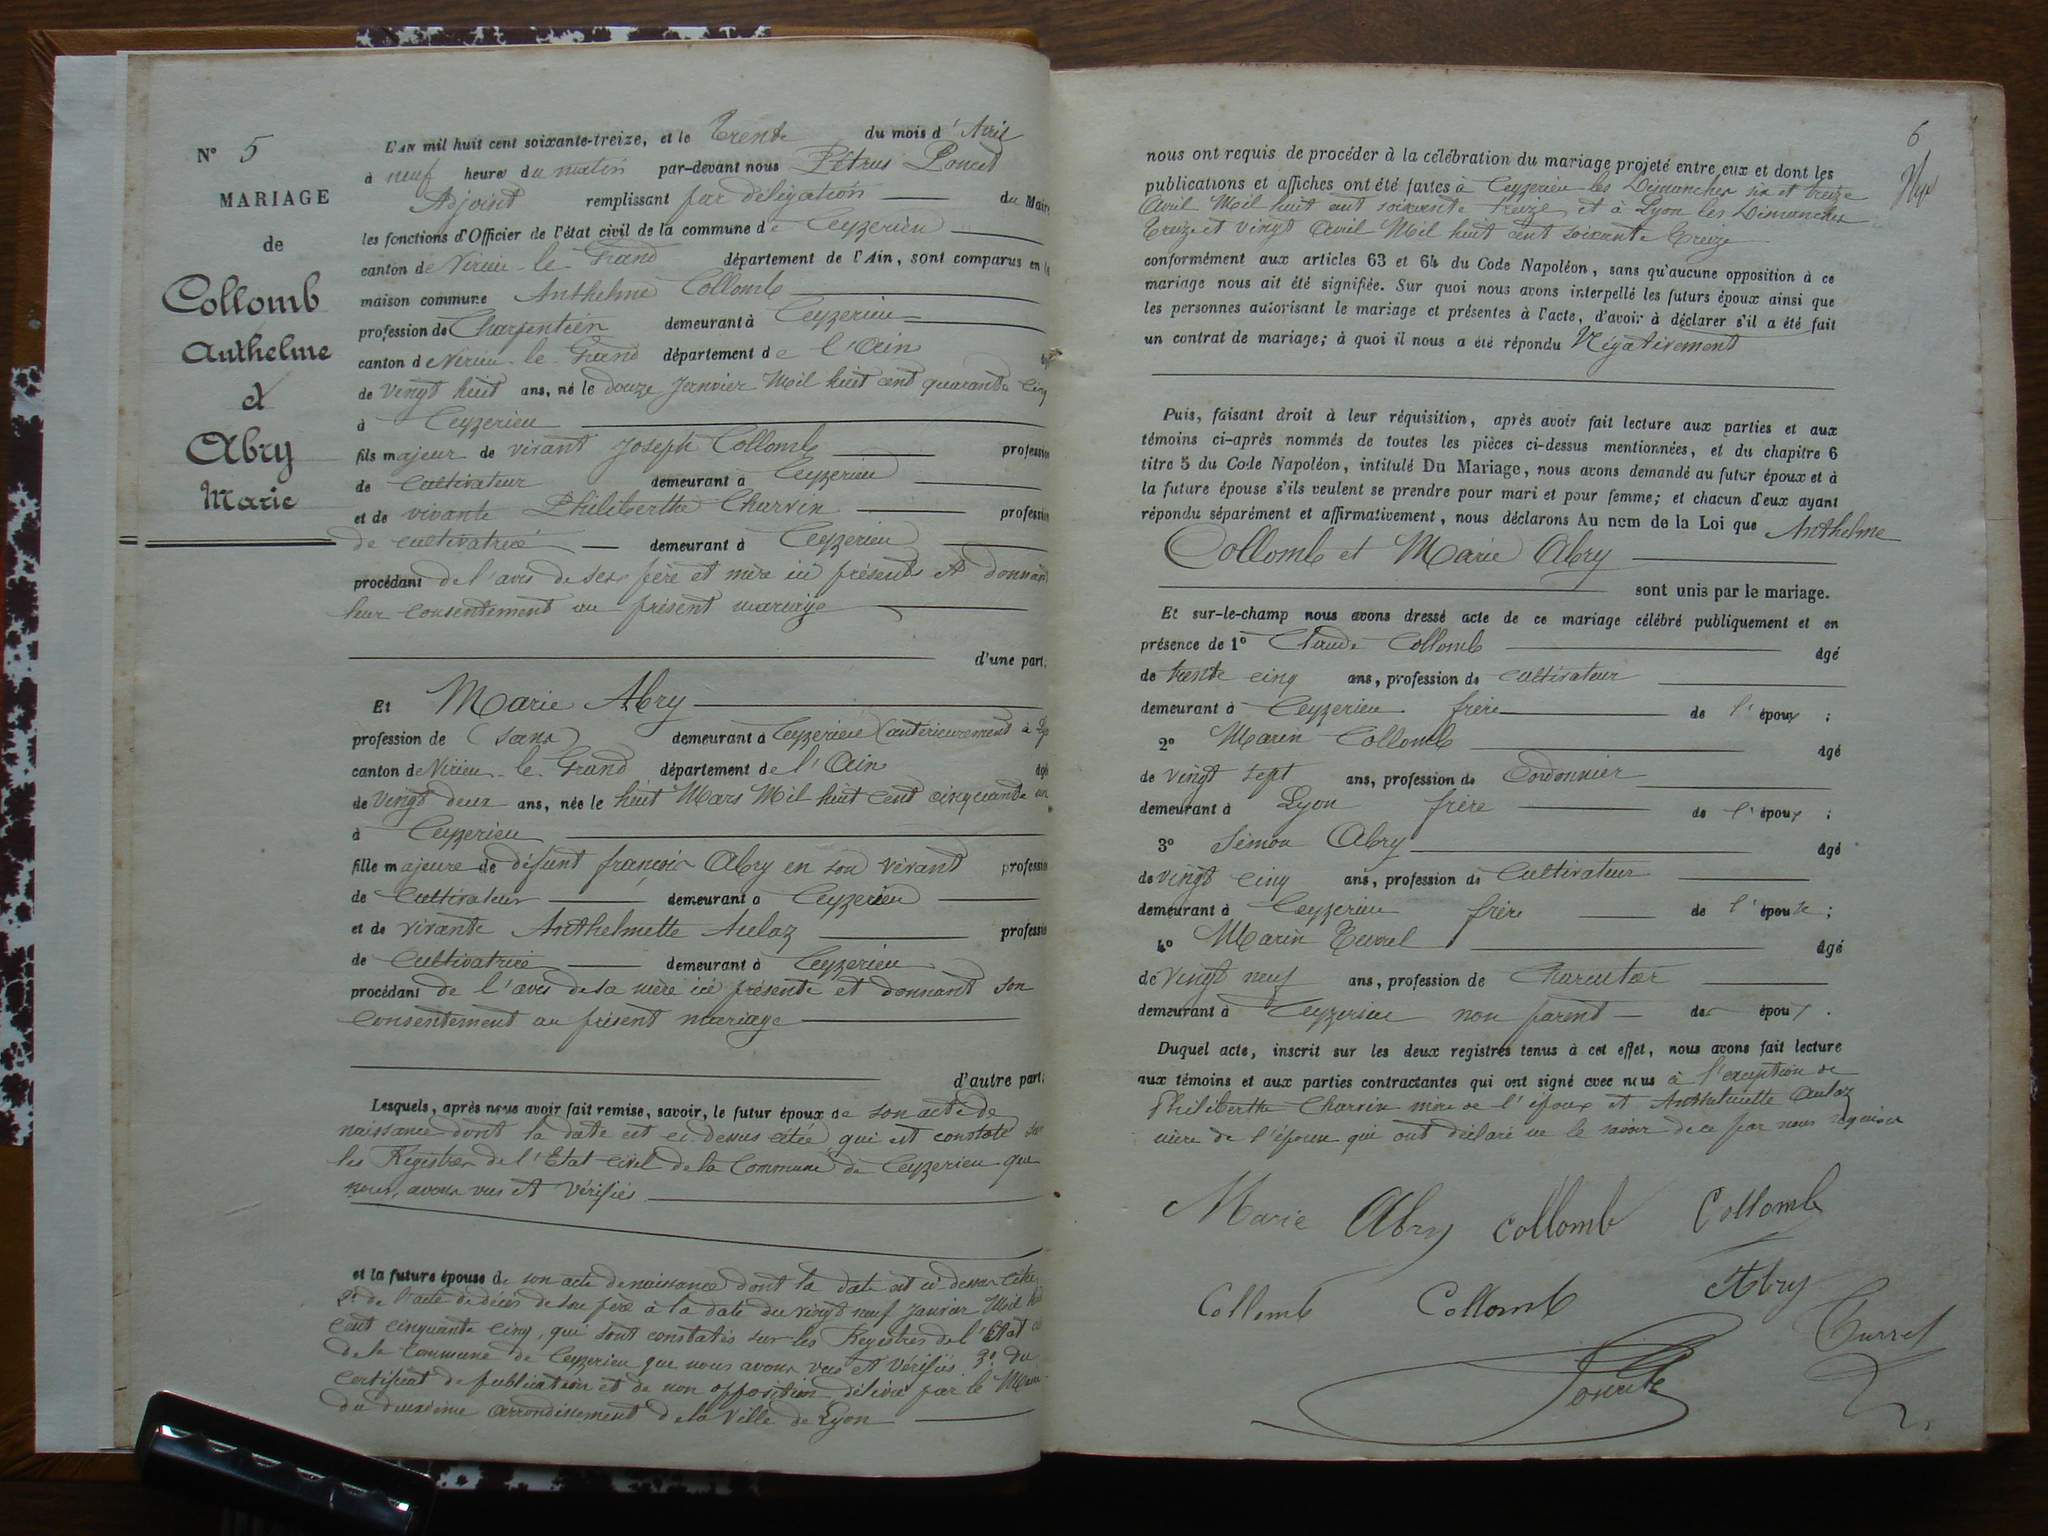 N° 5
MARIAGE
de
Collomb
Anthelme
et
Abry
Marie
L'AN mil huit cent soixante-treize, et le Trente du mois d'Avril
à neuf heures du matin par-devant nous Pétrus Poncet
Adjoint remplissant par déligation du Maire
les fonctions d'Officier de l'état civil de la commune de Ceyzerieu
canton de Virieu-le-Grand département de l'Ain, sont comparus en la
maison commune Anthelme Collomb
profession de Charpentier demeurant à Ceyzerieu
canton de Virieu-le-Grand département de l'Ain
de vingt huit ans, né le douze Janvier Mil huit cent quarante cinq
à Ceyzerieu
fils majeur de vivant Joseph Collomb profession
de cultivateur demeurant à Ceyzerieu
et de vivante Philiberthe Charvin profession
de cultivatrice demeurant à Ceyzerieu
procédant de l'avis de ses père et mère ici présents et donnant
leur consentement au présent mariage
d'une part;
Et Marie Abry
profession de (sans) demeurant à Ceyzerieu (antérieurement à
canton de Virieu-le-Grand département de l'Ain âgé
de vingt deux ans, née le huit Mars Mil huit cent cinquante un
à Ceyzerieu
fille majeure de défunt françois Abry en son vivant profession
de Cultivateur demeurant à Ceyzerieu
et de vivante Anthelmette Aulaz profession
de Cultivatrice demeurant à Ceyzerieu
procédant de l'avis de sa mère ici présente et donnant son
consentement au présent mariage
d'autre part;
Lesquels, après nous avoir fait remise, savoir, le futur époux de son acte de
naissance dont la date est ci-dessus citée qui est constaté sur
les Registres de l'Etat civil de la Commune de Ceyzerieu que
nous avons vus et vérifiés
et la future épouse de son acte de naissance dont la date est ci-dessus citée
2° de l'acte de décès de son père à la date du vingt neuf Janvier Mil huit
cent cinquante cinq, qui sont constatés sur les Registres de l'Etat
de la Commune de Ceyzerieu que nous avons vus et vérifiés 3° du
certificat de publication et de non opposition délivré par le Maire
du deuxième arrondissement de la Ville de Lyon
6
nous ont requis de procéder à la célébration du mariage projeté entre eux et dont les
publications et affiches ont été faites à Ceyzerieu les Dimanches six et treize
Avril Mil huit cent soixante treize et à Lyon les Dimanches
Treize et vingt Avril Mil huit cent soixante Treize
conformément aux articles 63 et 64 du Code Napoléon, sans qu'aucune opposition à ce
mariage nous ait été signifiée. Sur quoi nous avons interpellé les futurs époux ainsi que
les personnes autorisant le mariage et présentes à l'acte, d'avoir à déclarer s'il a été fait
un contrat de mariage; à quoi il nous a été répondu Négativement
Puis, faisant droit à leur réquisition, après avoir fait lecture aux parties et aux
témoins ci-après nommés de toutes les pièces ci-dessus mentionnées, et du chapitre 6
titre 5 du Code Napoléon, intitulé Du Mariage, nous avons demandé au futur époux et à
la future épouse s'ils veulent se prendre pour mari et pour femme; et chacun d'eux ayant
répondu séparément et affirmativement, nous déclarons Au nom de la Loi que Anthelme
Collomb et Marie Abry
sont unis par le mariage.
Et sur-le-champ nous avons dressé acte de ce mariage célébré publiquement et en
présence de 1° Claude Collomb âgé
de trente cinq ans, profession de cultivateur
demeurant à Ceyzerieu frère de l'époux;
2° Marin Collomb âgé
de vingt sept ans, profession de Cordonnier
demeurant à Lyon frère de l'époux;
3° Simon Abry âgé
de vingt cinq ans, profession de Cultivateur
demeurant à Ceyzerieu frère de l'épouse;
4° Marin Turrel âgé
de vingt neuf ans, profession de Charcutier
demeurant à Ceyzerieu non parent des époux.
Duquel acte, inscrit sur les deux registres tenus à cet effet, nous avons fait lecture
aux témoins et aux parties contractantes qui ont signé avec nous à l'exception de
Philiberthe Charvin mère de l'époux et Anthelmette Aulaz
mère de l'épouse qui ont déclaré ne le savoir de ce par nous requises
Marie Abry Collomb Collomb
Collomb Collomb Abry
Turrel
Poncet